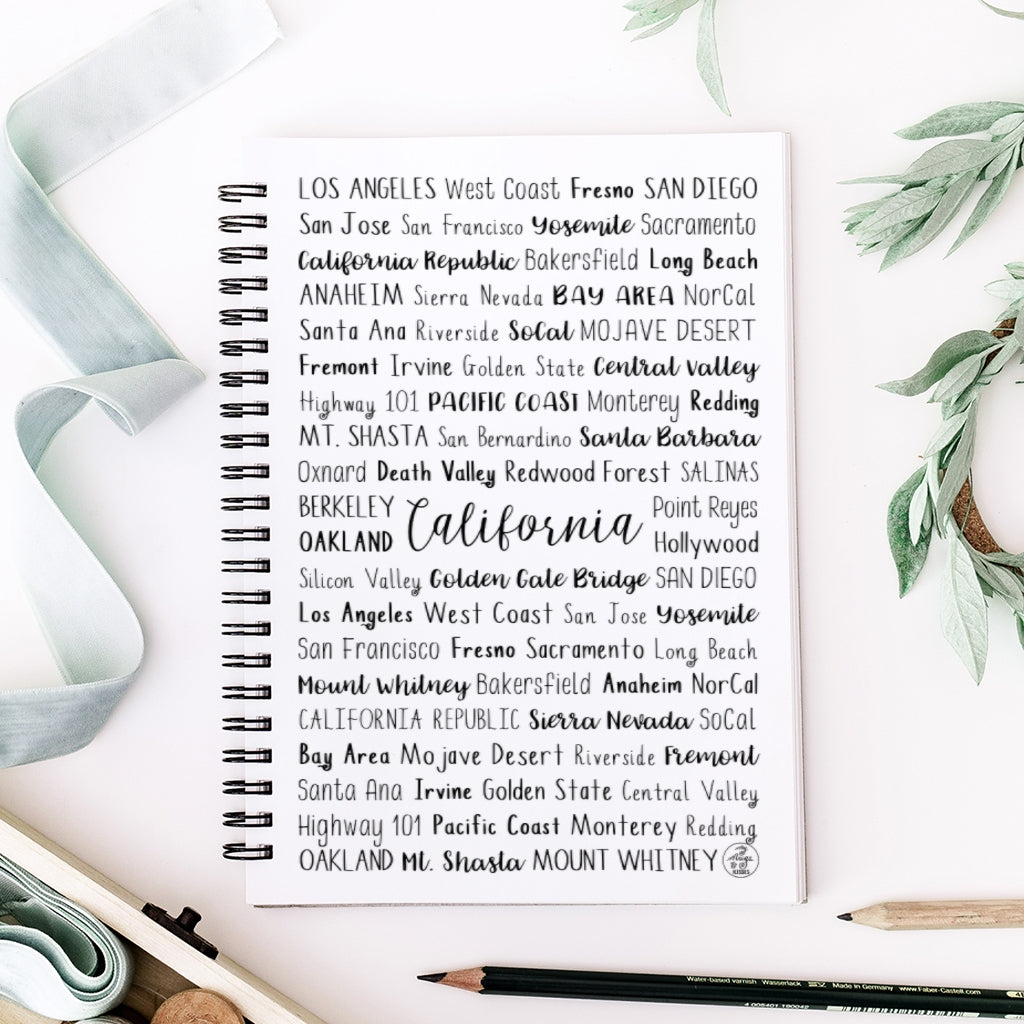 LOS ANGELES West Coast Fresno SAN DIEGO
San Jose San Francisco Yosemite Sacramento
California Republic Bakersfield Long Beach
ANAHEIM Sierra Nevada BAY AREA NorCal
Santa Ana Riverside SoCal MOJAVE DESERT
Fremont Irvine Golden State Central Valley
Highway 101 PACIFIC COAST Monterey Redding
MT. SHASTA San Bernardino Santa Barbara
Oxnard Death Valley Redwood Forest SALINAS
BERKELEY
OAKLAND
California
Point Reyes
Hollywood
Silicon Valley Golden Gate Bridge SAN DIEGO
Los Angeles West Coast San Jose Yosemite
San Francisco Fresno Sacramento Long Beach
Mount Whitney Bakersfield Anaheim NorCal
CALIFORNIA REPUBLIC Sierra Nevada SoCal
Bay Area Mojave Desert Riverside Fremont
Santa Ana Irvine Golden State Central Valley
Highway 101 Pacific Coast Monterey Redding
OAKLAND Mt. Shasta MOUNT WHITNEY
Water-based varnish Wasserlack Made in Germany www.Faber-Castell.com
4 005401 190042